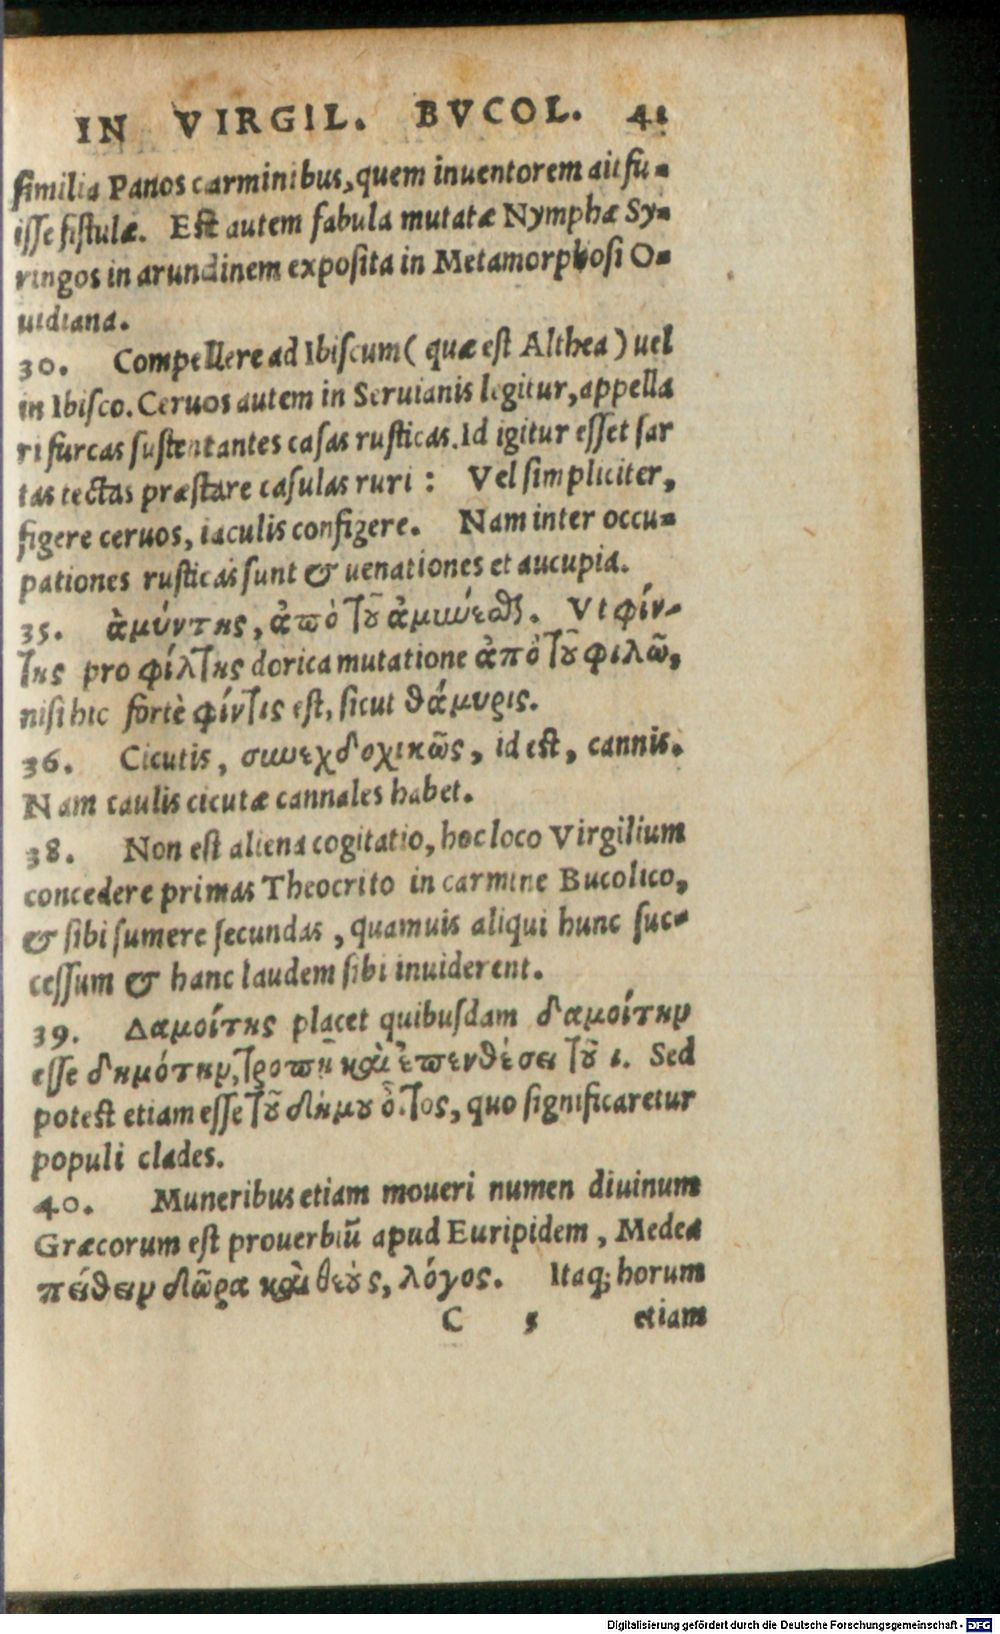 IN VIRGIL. BVCOL. 41
similia Panos carminibus, quem inuentorem ait fu-
isse fistulæ. Est autem fabula mutatæ Nymphæ Sy-
ringos in arundinem exposita in Metamorphosi O-
uidiana.
30. Compellere ad Ibiscum ( quæ est Althea ) uel
in Ibisco. Ceruos autem in Seruianis legitur, appella
ri furcas sustentantes casas rusticas. Id igitur esset sar
tas tectas præstare casulas ruri : Vel simpliciter,
figere ceruos, iaculis configere. Nam inter occu-
pationes rusticas sunt & uenationes et aucupia.
35. ἀμύντης, ἀπὸ τοῦ ἀμύνεσθαι. Vt φίν-
της pro φίλτης dorica mutatione ἀπὸ τοῦ φιλῶ,
nisi hic fortè φίντις est, sicut θάμυρις.
36. Cicutis, συνεκδοχικῶς, id est, cannis.
Nam caulis cicutæ cannales habet.
38. Non est aliena cogitatio, hoc loco Virgilium
concedere primas Theocrito in carmine Bucolico,
& sibi sumere secundas, quamuis aliqui hunc suc-
cessum & hanc laudem sibi inuiderent.
39. Δαμοίτης placet quibusdam δαμοίτην
esse δημότην, τροπῇ καὶ ἐπενθέσει τοῦ ι. Sed
potest etiam esse τοῦ δήμου οἶτος, quo significaretur
populi clades.
40. Muneribus etiam moueri numen diuinum
Græcorum est prouerbiū apud Euripidem, Medea
πείθειν δῶρα καὶ θεοὺς, λόγος. Itaq; horum
C 5 etiam
Digitalisierung gefördert durch die Deutsche Forschungsgemeinschaft - DFG